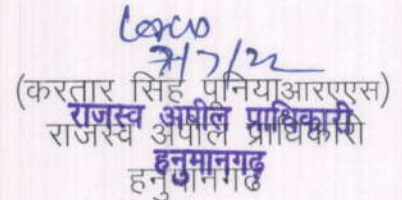 7/7/22
(करतार सिंह पूनियाआरएएस)
राजस्व अपील प्राधिकारी
राजस्व अपील प्राधिकारी
हनुमानगढ़
हनुमानगढ